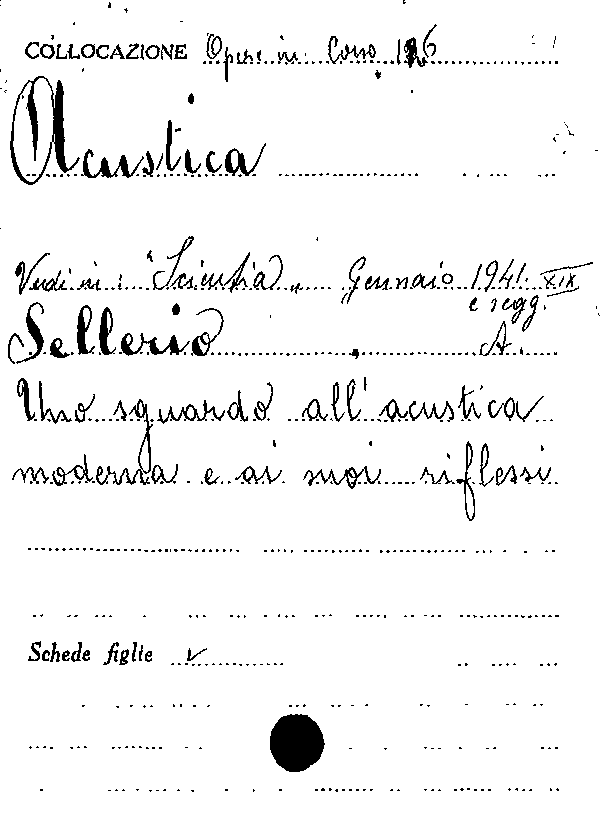 COLLOCAZIONE Opere in Corso 126
Acustica
Vedi in: "Scientia" Gennaio 1941. XIX
e segg.
Sellerio A.
Uno sguardo all'acustica
moderna e ai suoi riflessi
Schede figlie v